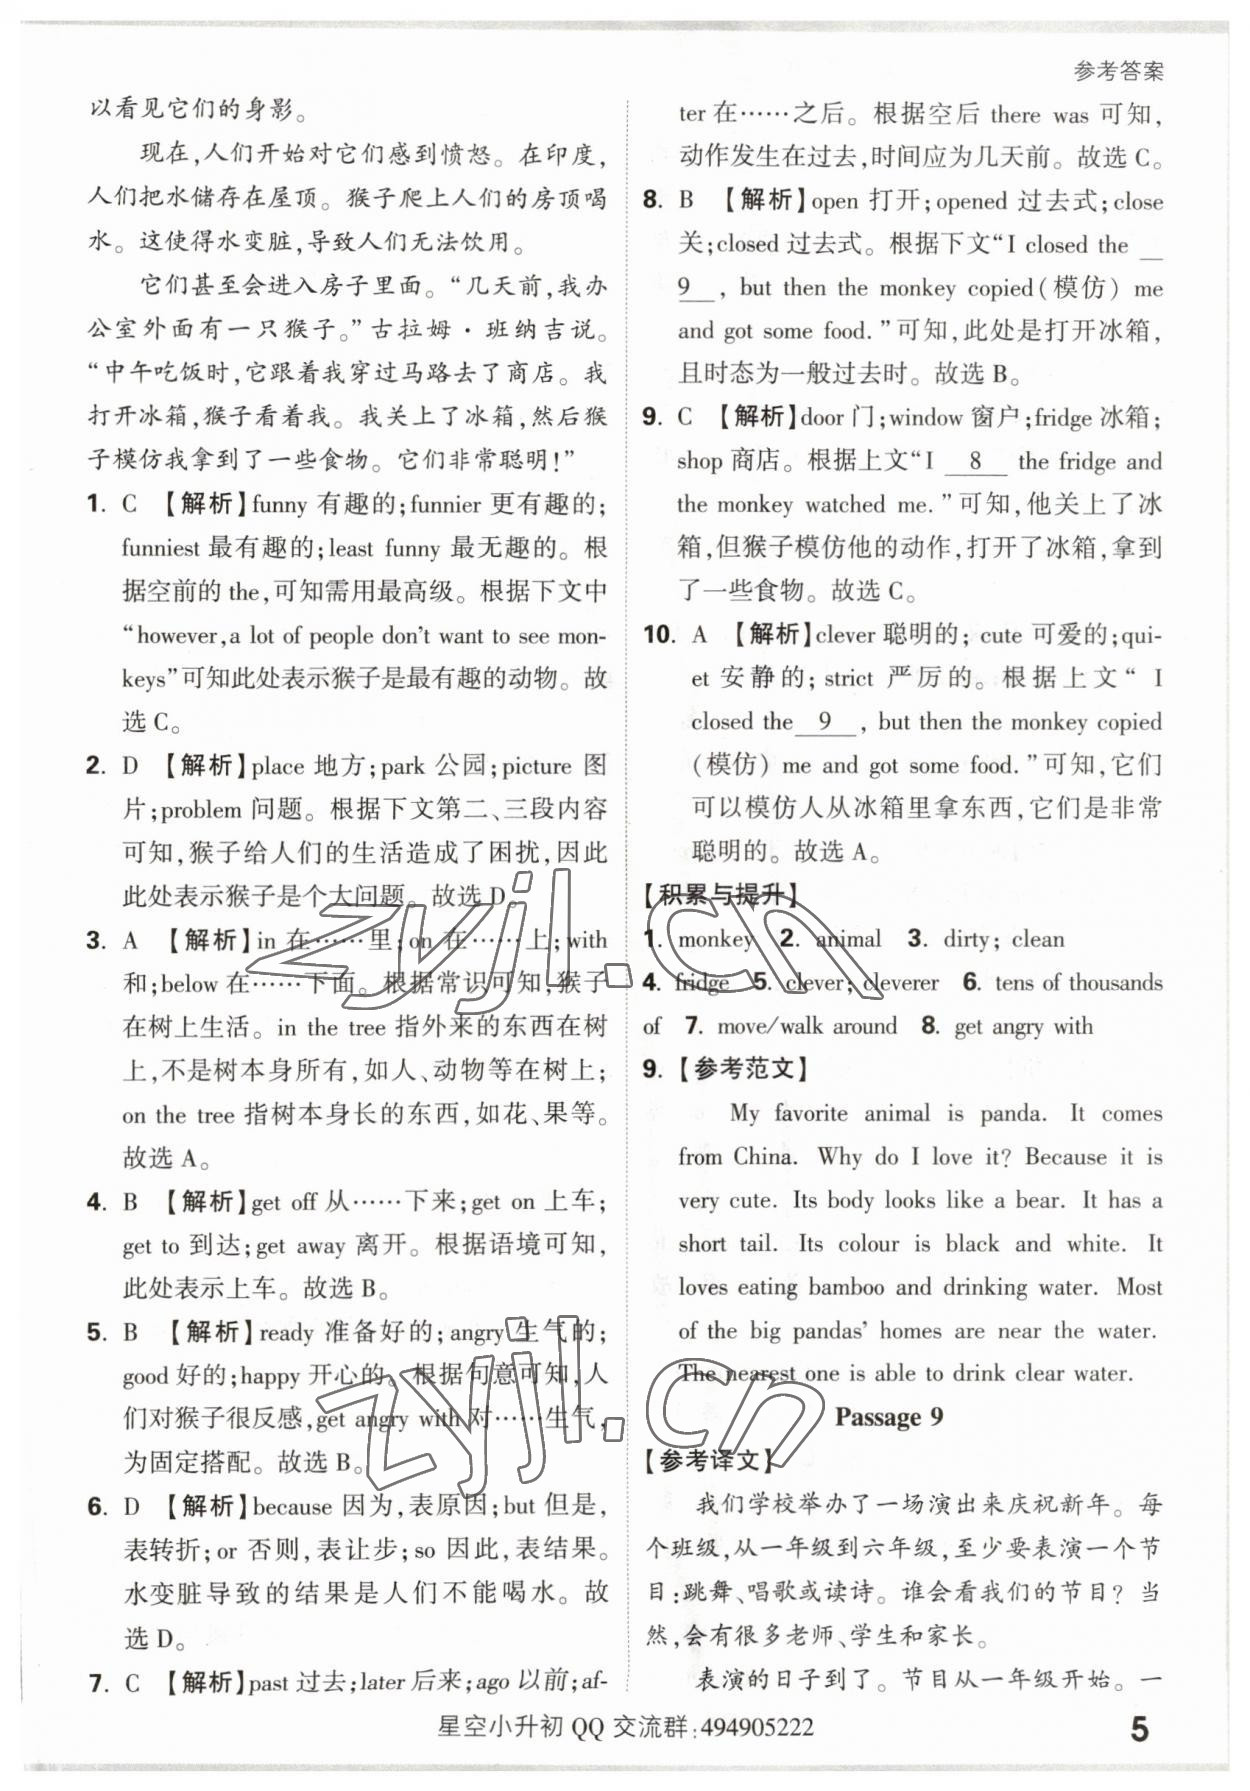 参考答案
以看见它们的身影。
现在,人们开始对它们感到愤怒。在印度,
人们把水储存在屋顶。猴子爬上人们的房顶喝
水。这使得水变脏,导致人们无法饮用。
它们甚至会进入房子里面。“几天前,我办
公室外面有一只猴子。”古拉姆·班纳吉说。
“中午吃饭时,它跟着我穿过马路去了商店。我
打开冰箱,猴子看着我。我关上了冰箱,然后猴
子模仿我拿到了一些食物。它们非常聪明!”
1. C 【解析】funny 有趣的;funnier 更有趣的;
funniest 最有趣的;least funny 最无趣的。根
据空前的 the,可知需用最高级。根据下文中
“however,a lot of people don't want to see mon-
keys”可知此处表示猴子是最有趣的动物。故
选 C。
2. D 【解析】place 地方;park 公园;picture 图
片;problem 问题。根据下文第二、三段内容
可知,猴子给人们的生活造成了困扰,因此
此处表示猴子是个大问题。故选 D。
3. A 【解析】in 在……里;on 在……上;with
和;below 在……下面。根据常识可知,猴子
在树上生活。in the tree 指外来的东西在树
上,不是树本身所有,如人、动物等在树上;
on the tree 指树本身长的东西,如花、果等。
故选 A。
4. B 【解析】get off 从……下来;get on 上车;
get to 到达;get away 离开。根据语境可知,
此处表示上车。故选 B。
5. B 【解析】ready 准备好的;angry 生气的;
good 好的;happy 开心的。根据句意可知,人
们对猴子很反感,get angry with 对……生气,
为固定搭配。故选 B。
6. D 【解析】because 因为,表原因;but 但是,
表转折;or 否则,表让步;so 因此,表结果。
水变脏导致的结果是人们不能喝水。故
选 D。
7. C 【解析】past 过去;later 后来;ago 以前;af-
ter 在……之后。根据空后 there was 可知,
动作发生在过去,时间应为几天前。故选 C。
8. B 【解析】open 打开;opened 过去式;close
关;closed 过去式。根据下文“I closed the __
9__, but then the monkey copied(模仿) me
and got some food.”可知,此处是打开冰箱,
且时态为一般过去时。故选 B。
9. C 【解析】door 门;window 窗户;fridge 冰箱;
shop 商店。根据上文“I __8__ the fridge and
the monkey watched me.”可知,他关上了冰
箱,但猴子模仿他的动作,打开了冰箱,拿到
了一些食物。故选 C。
10. A 【解析】clever 聪明的; cute 可爱的;qui-
et 安静的; strict 严厉的。根据上文“ I
closed the __9__, but then the monkey copied
(模仿) me and got some food.”可知,它们
可以模仿人从冰箱里拿东西,它们是非常
聪明的。故选 A。
【积累与提升】
1. monkey 2. animal 3. dirty; clean
4. fridge 5. clever; cleverer 6. tens of thousands
of 7. move/walk around 8. get angry with
9. 【参考范文】
My favorite animal is panda. It comes
from China. Why do I love it? Because it is
very cute. Its body looks like a bear. It has a
short tail. Its colour is black and white. It
loves eating bamboo and drinking water. Most
of the big pandas' homes are near the water.
The nearest one is able to drink clear water.
Passage 9
【参考译文】
我们学校举办了一场演出来庆祝新年。每
个班级,从一年级到六年级,至少要表演一个节
目:跳舞、唱歌或读诗。谁会看我们的节目? 当
然,会有很多老师、学生和家长。
表演的日子到了。节目从一年级开始。一
zyjl.cn
zyjl.cn
星空小升初 QQ 交流群:494905222
5